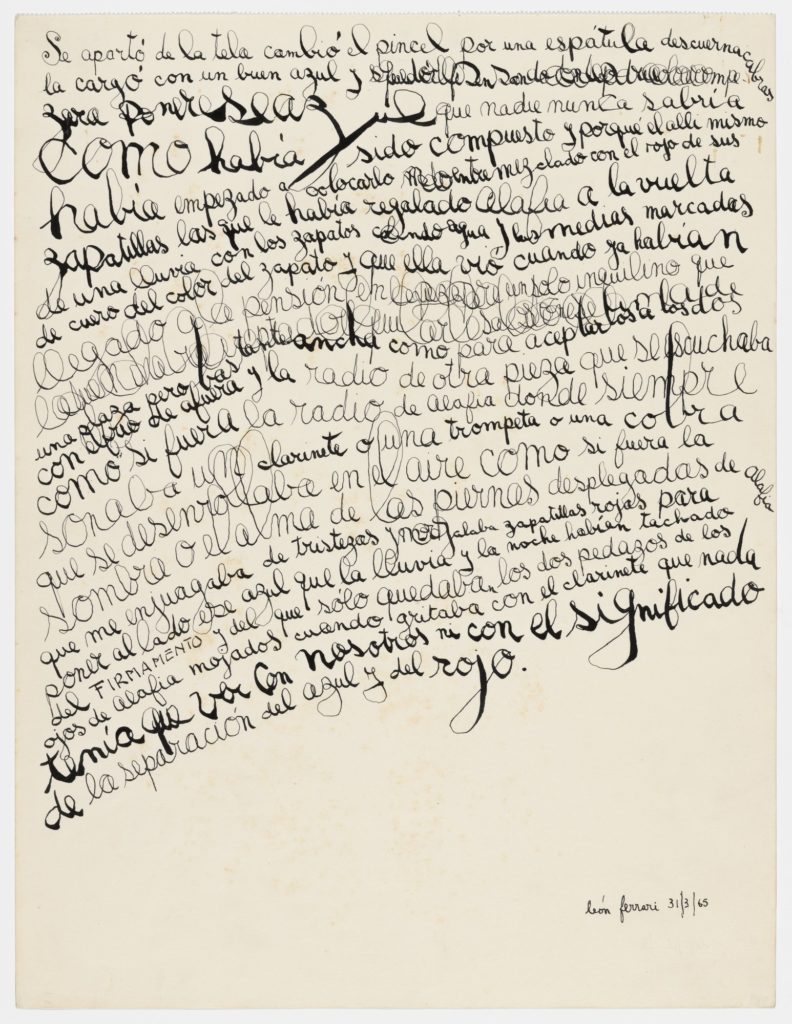 Se apartó de la tela cambió el pincel por una espátula descuerna cabras
la cargó con un buen azul y se quedó pensando
zara poner ese azul que nadie nunca sabría
como había sido compuesto y porqué el allí mismo
había empezado a colocarlo entremezclado con el rojo de sus
zapatillas las que le había regalado alafia a la vuelta
de una lluvia con los zapatos agua y las medias marcadas
de cuero del color del zapato y que ella vió cuando ya habían
llegado a la pensión un solo inquilino que
una plaza pero bastante ancha como para aceptarlos a los dos
con el frío de afuera y la radio de otra pieza que se escuchaba
como si fuera la radio de alafia donde siempre
sonaba un clarinete o una trompeta o una cobra
que se desenrollaba en el aire como si fuera la
sombra o el alma de las piernas desplegadas de alafia
que me enjuagaba de tristezas y me regalaba zapatillas rojas para
poner al lado ese azul que la lluvia y la noche habían tachado
del FIRMAMENTO y del que sólo quedaban los dos pedazos de los
ojos de alafia mojados cuando gritaba con el clarinete que nada
tenía que ver con nosotros ni con el significado
de la separación del azul y del rojo.
león ferrari 31/3/65